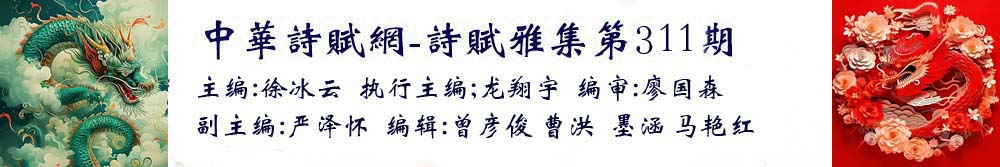 中華詩賦網-詩賦雅集第311期
主编:徐冰云 执行主编;龙翔宇 编审:廖国森
副主编:严泽怀 编辑:曾彦俊 曹洪 墨涵 马艳红